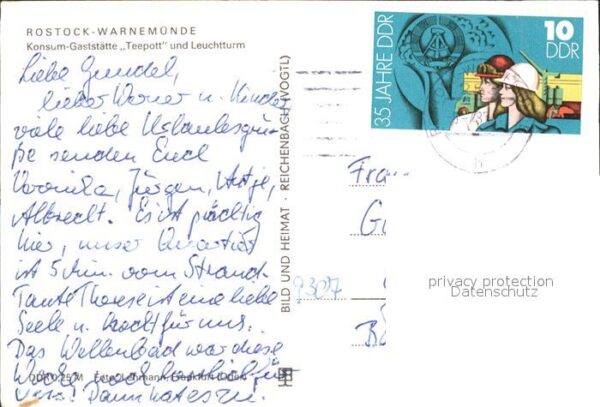 ROSTOCK-WARNEMÜNDE
Konsum-Gaststätte „Teepott" und Leuchtturm
Liebe Gundel,
lieber Werner u. Kinder
viele liebe Urlaubsgrü-
ße senden Euch
Jürgen, Antje,
Albrecht. Es ist prächtig
hier, unser Quartier
ist 5 Min. vom Strand.
Tante Therese ist eine liebe
Seele u. kocht für uns.
Das Wellenbad war diese
Woche noch für
uns! Dann hat es zu.
DDR 0,25 M Foto: Lehmann,
BILD UND HEIMAT · REICHENBACH (VOGTL)
35 JAHRE DDR
10
DDR
Fra
G
9307
B
privacy protection
Datenschutz